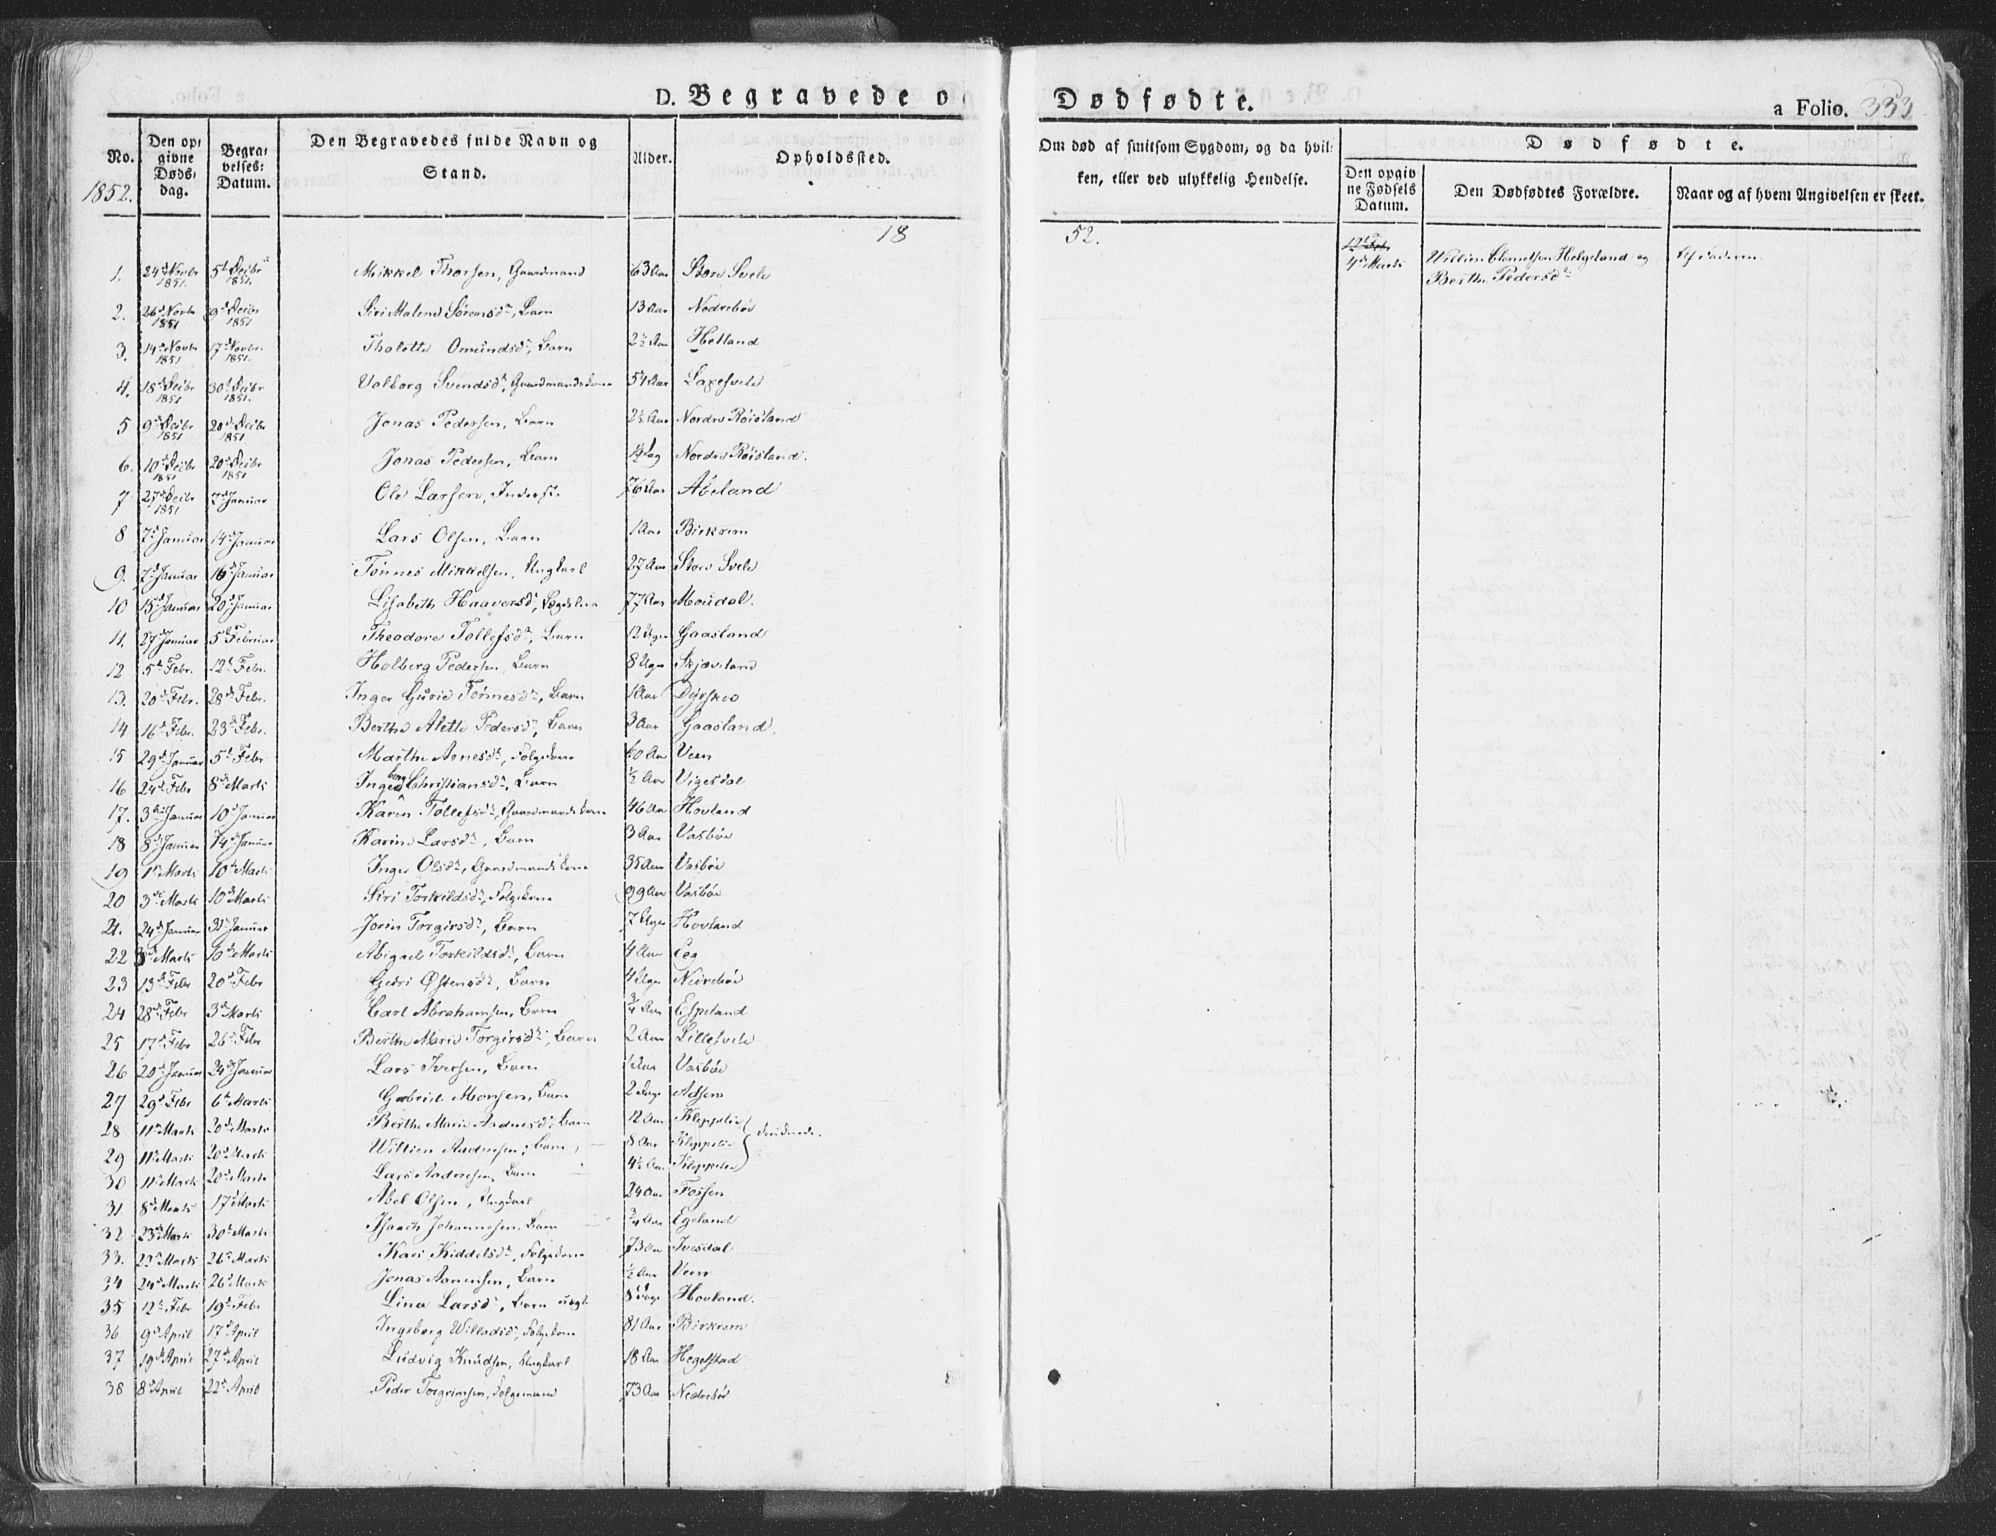 D. Begravede o
No.
1852.
Den op=
givne
Døds=
dag.
Begra=
velses=
Datum.
Den Begravedes fulde Navn og
Stand.
Alder.
Opholdssted.
18
1. 24de Novbr 1851 5te Decbr 1851. Mikkel Thorsen, Gaardmand 63 Aar Store Svele
2. 26de Novbr 1851 9de Decbr 1851 Siri Malene Sørensdr, Barn 13 Aar Nedrebø
3. 14de Novbr 1851 17de Novbr. 1851. Tholette Omundsdr, Barn 2½ Aar Hetland
4. 18de Decbr 1851 30te Decbr 1851. Valborg Svendsdr, Gaardmandskone 54 Aar Laxesvele
5 9de Decbr 1851 20de Decbr 1851 Jonas Pedersen, Barn 2½ Aar Nordre Røisland
6. 10de Decbr 1851 20de Decbr 1851 Jonas Pedersen, Barn Nordre Røisland.
7 27de Decbr 1851 2de Januar Ole Larsen, Inderst. 76 Aar Abeland
8 7de Januar 14de Januar Lars Olsen, Barn 1 Aar Birkrem
9. 7de Januar 16de Januar Tønnes Mikkelsen, Ungkarl 27 Aar Store Svele
10 15de Januar 20de Januar Lisabeth Haaversdr, Lægdslem 77 Aar Moudal.
11. 27de Januar 5te Februar Theodore Tollefsdr, Barn 12 Uger Gaasland
12 5te Febr. 12te Febr. Holberg Pedersen, Barn 8 Uger Skjæveland
13. 20de Febr. 28de Febr. Inger Gurie Tønnesdr, Barn 1 Aar Dyrskog
14 16de Febr. 23de Febr. Berthe Alette Pedersdr, Barn 3 Aar Gaasland.
15 29de Januar 5te Febr Marthe Arnesdr, Folgekone 60 Aar Veen
16 24de Febr 8de Marts Ingeborg Christiansdr, Barn ½ Aar Vigesdal
17. 3die Januar 10de Januar Karen Tollefsdr, Gaardmandskone 46 Aar Hovland
18 8de Januar 14de Januar Karine Larsdr, Barn 3 Aar Vasbøe
19 1ste Marts 10de Marts Inger Olsdr, Gaardmandskone 35 Aar Vasbøe
20 3die Marts 10de Marts Siri Torkildsdr, Folgekone 99 Aar Vasbøe
21. 24de Januar 31te Januar Jorin Torgersdr, Barn 7 Uger Hovland
22 3die Marts 10de Marts Abigael Torkildsdr, Barn 4 Aar Eeg
23 13de Febr 20de Febr Guri Østensdr, Barn 4 Uger Nedrebø
24 28de Febr 3die Marts Carl Abrahamsen, Barn ¾ Aar Espeland
25 17de Febr 26de Febr Berthe Marie Torgersdr, Barn 2 Aar Lillesvele
26 20de Januar 24de Januar Lars Iversen, Barn 1 Aar Vasbøe
27 29de Febr 6te Marts Gabriel Monsen, Barn 2 Dage Adsem
28 11te Marts 20de Marts Berthe Marie Aadnesdr, Barn 12 Aar Kleppelie
29 11te Marts 20de Marts Willien Aadnesen, Barn 8 Aar Kleppelie druknede.
30 11te Marts 20de Marts Lars Aadnesen, Barn 4½ Aar Kleppelie
31 8de Marts 17de Marts Abel Olsen, Ungkarl 24 Aar Fossen
32. 23de Marts 30te Marts Isaach Johannesen, Barn ¾ Aar Egeland
33. 22de Marts 26de Marts Kari Kiddelsdr, Folgekone 73 Aar Ivesdal
34 24de Marts 26de Marts Jonas Aanensen, Barn ½ Aar Veen
35 12te Febr 19de Febr Lina Larsdr, Barn uægte 8 Dage Hovland.
36 9de April 17de April Ingeborg Willadsdr, Folgekone 81 Aar Birkrem
37 19de April 27de April Ludvig Knudsen, Ungkarl 18 Aar Hegelstad
38 8de April 22de April Peder Torgrimsen, Folgemand 73 Aar Nedrebø
Dødfødte.
a Folio. 333
Om død af smitsom Sygdom, og da hvil=
ken, eller ved ulykkelig Hendelse.
Dødfødte.
Den opgiv
ne Fødsels
Datum.
Den Dødfødtes Forældre.
Naar og af hvem Angivelsen er skeet.
52.
4de Marts Willien Clemetsen Helgeland og Af Faderen.
Berthe Pedersdr